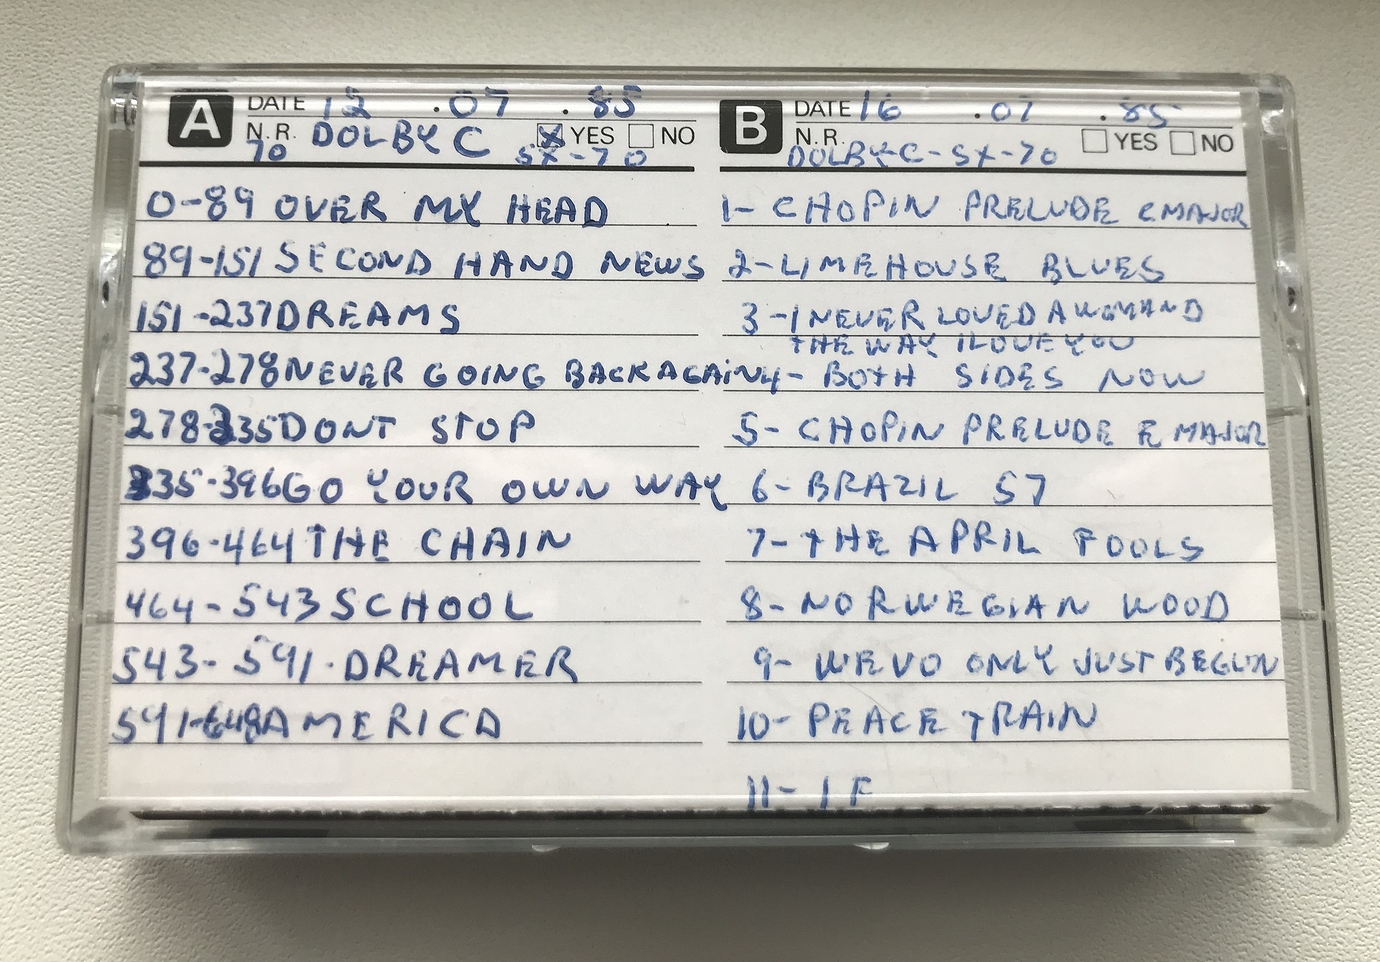 A DATE 12 .07 .85
N.R. DOLBY C YES NO
70 SX-70
0-89 OVER MY HEAD
89-151 SECOND HAND NEWS
151-237 DREAMS
237-278 NEVER GOING BACK AGAIN
278-335 DONT STOP
335-396 GO YOUR OWN WAY
396-464 THE CHAIN
464-543 SCHOOL
543-591. DREAMER
591-648 AMERICA
B DATE 16 .07 .85
N.R. YES NO
DOLBY-C-SX-70
1- CHOPIN PRELUDE C MAJOR
2- LIMEHOUSE BLUES
3- I NEVER LOVED A WOMAND
THE WAY I LOVE YOU
4- BOTH SIDES NOW
5- CHOPIN PRELUDE E MAJOR
6- BRAZIL 57
7- THE APRIL FOOLS
8- NORWEGIAN WOOD
9- WEVO ONLY JUST BEGUN
10- PEACE TRAIN
11- IF